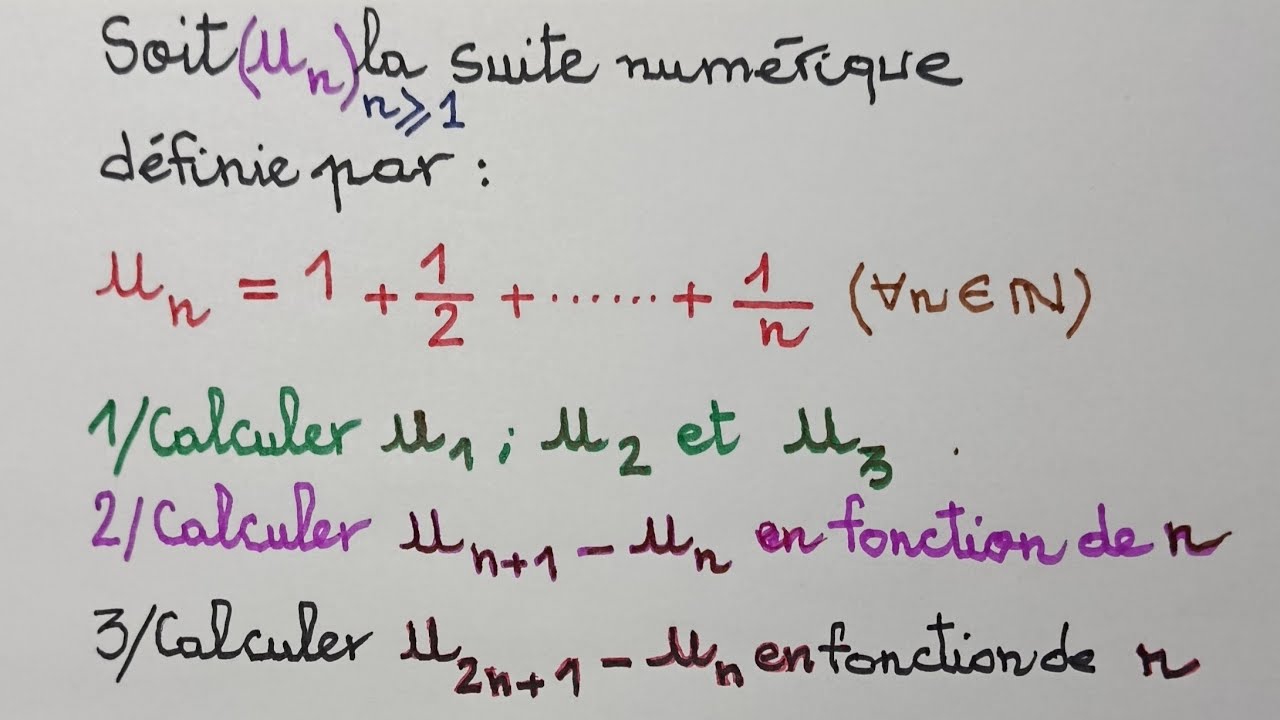 Soit (Un)n⩾1 la suite numérique
définie par :
Un = 1 + 1/2 + ...... + 1/n (∀n∈ℕ)
1/Calculer U1 ; U2 et U3 .
2/Calculer Un+1 - Un en fonction de n
3/Calculer U2n+1 - Un en fonction de n